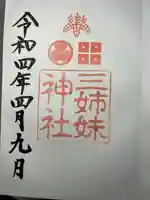 三姉妹
神社
令和四年四月九日